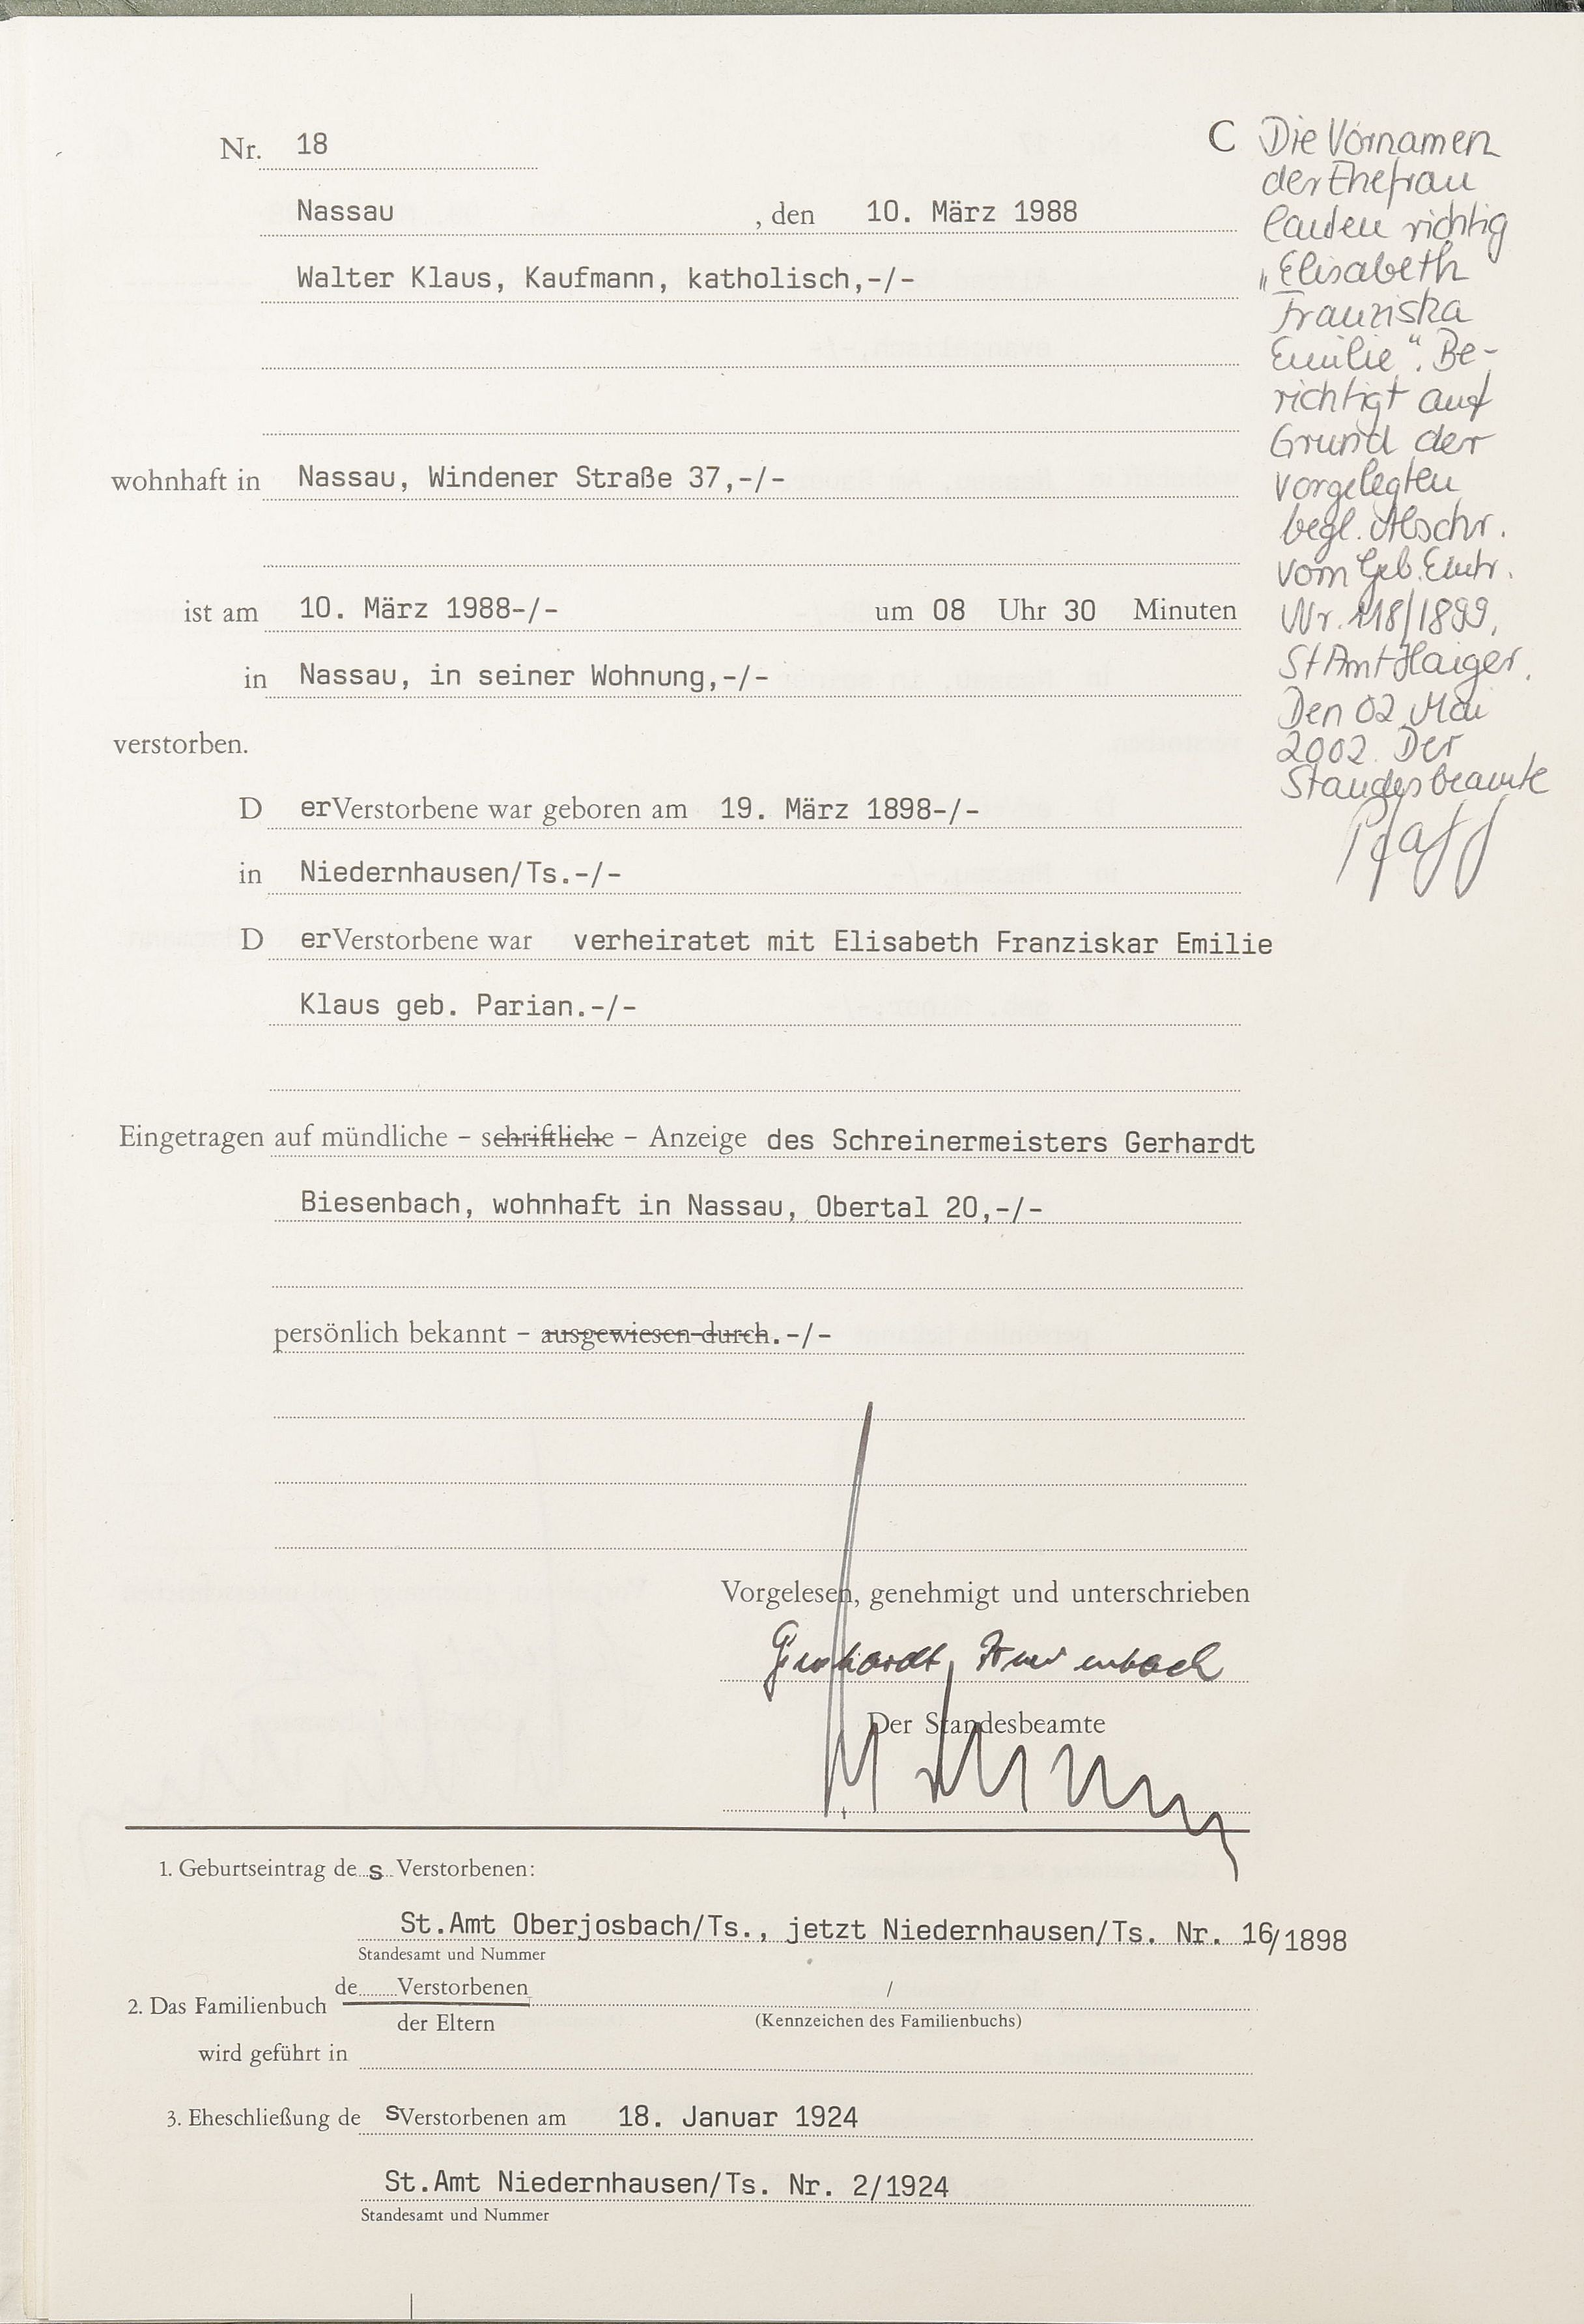 Nr. 18
Nassau , den 10. März 1988
Walter Klaus, Kaufmann, katholisch,-/-
wohnhaft in Nassau, Windener Straße 37,-/-
ist am 10. März 1988-/- um 08 Uhr 30 Minuten
in Nassau, in seiner Wohnung,-/-
verstorben.
D er Verstorbene war geboren am 19. März 1898-/-
in Niedernhausen/Ts.-/-
D er Verstorbene war verheiratet mit Elisabeth Franziskar Emilie
Klaus geb. Parian.-/-
Eingetragen auf mündliche – schriftliche – Anzeige des Schreinermeisters Gerhardt
Biesenbach, wohnhaft in Nassau, Obertal 20,-/-
persönlich bekannt – ausgewiesen durch.-/-
Vorgelesen, genehmigt und unterschrieben
Gerhardt Biesenbach
Der Standesbeamte
1. Geburtseintrag de s Verstorbenen:
St.Amt Oberjosbach/Ts., jetzt Niedernhausen/Ts. Nr. 16/1898
Standesamt und Nummer
2. Das Familienbuch de Verstorbenen /
der Eltern (Kennzeichen des Familienbuchs)
wird geführt in
3. Eheschließung de s Verstorbenen am 18. Januar 1924
St.Amt Niedernhausen/Ts. Nr. 2/1924
Standesamt und Nummer
C Die Vornamen
der Ehefrau
lauten richtig
„Elisabeth
Franziska
Emilie“. Be-
richtigt auf
Grund der
vorgelegten
begl. Abschr.
vom Geb. Eintr.
Nr. 118/1899,
StAmt Haiger.
Den 02. Mai
2002. Der
Standesbeamte
Pfaff